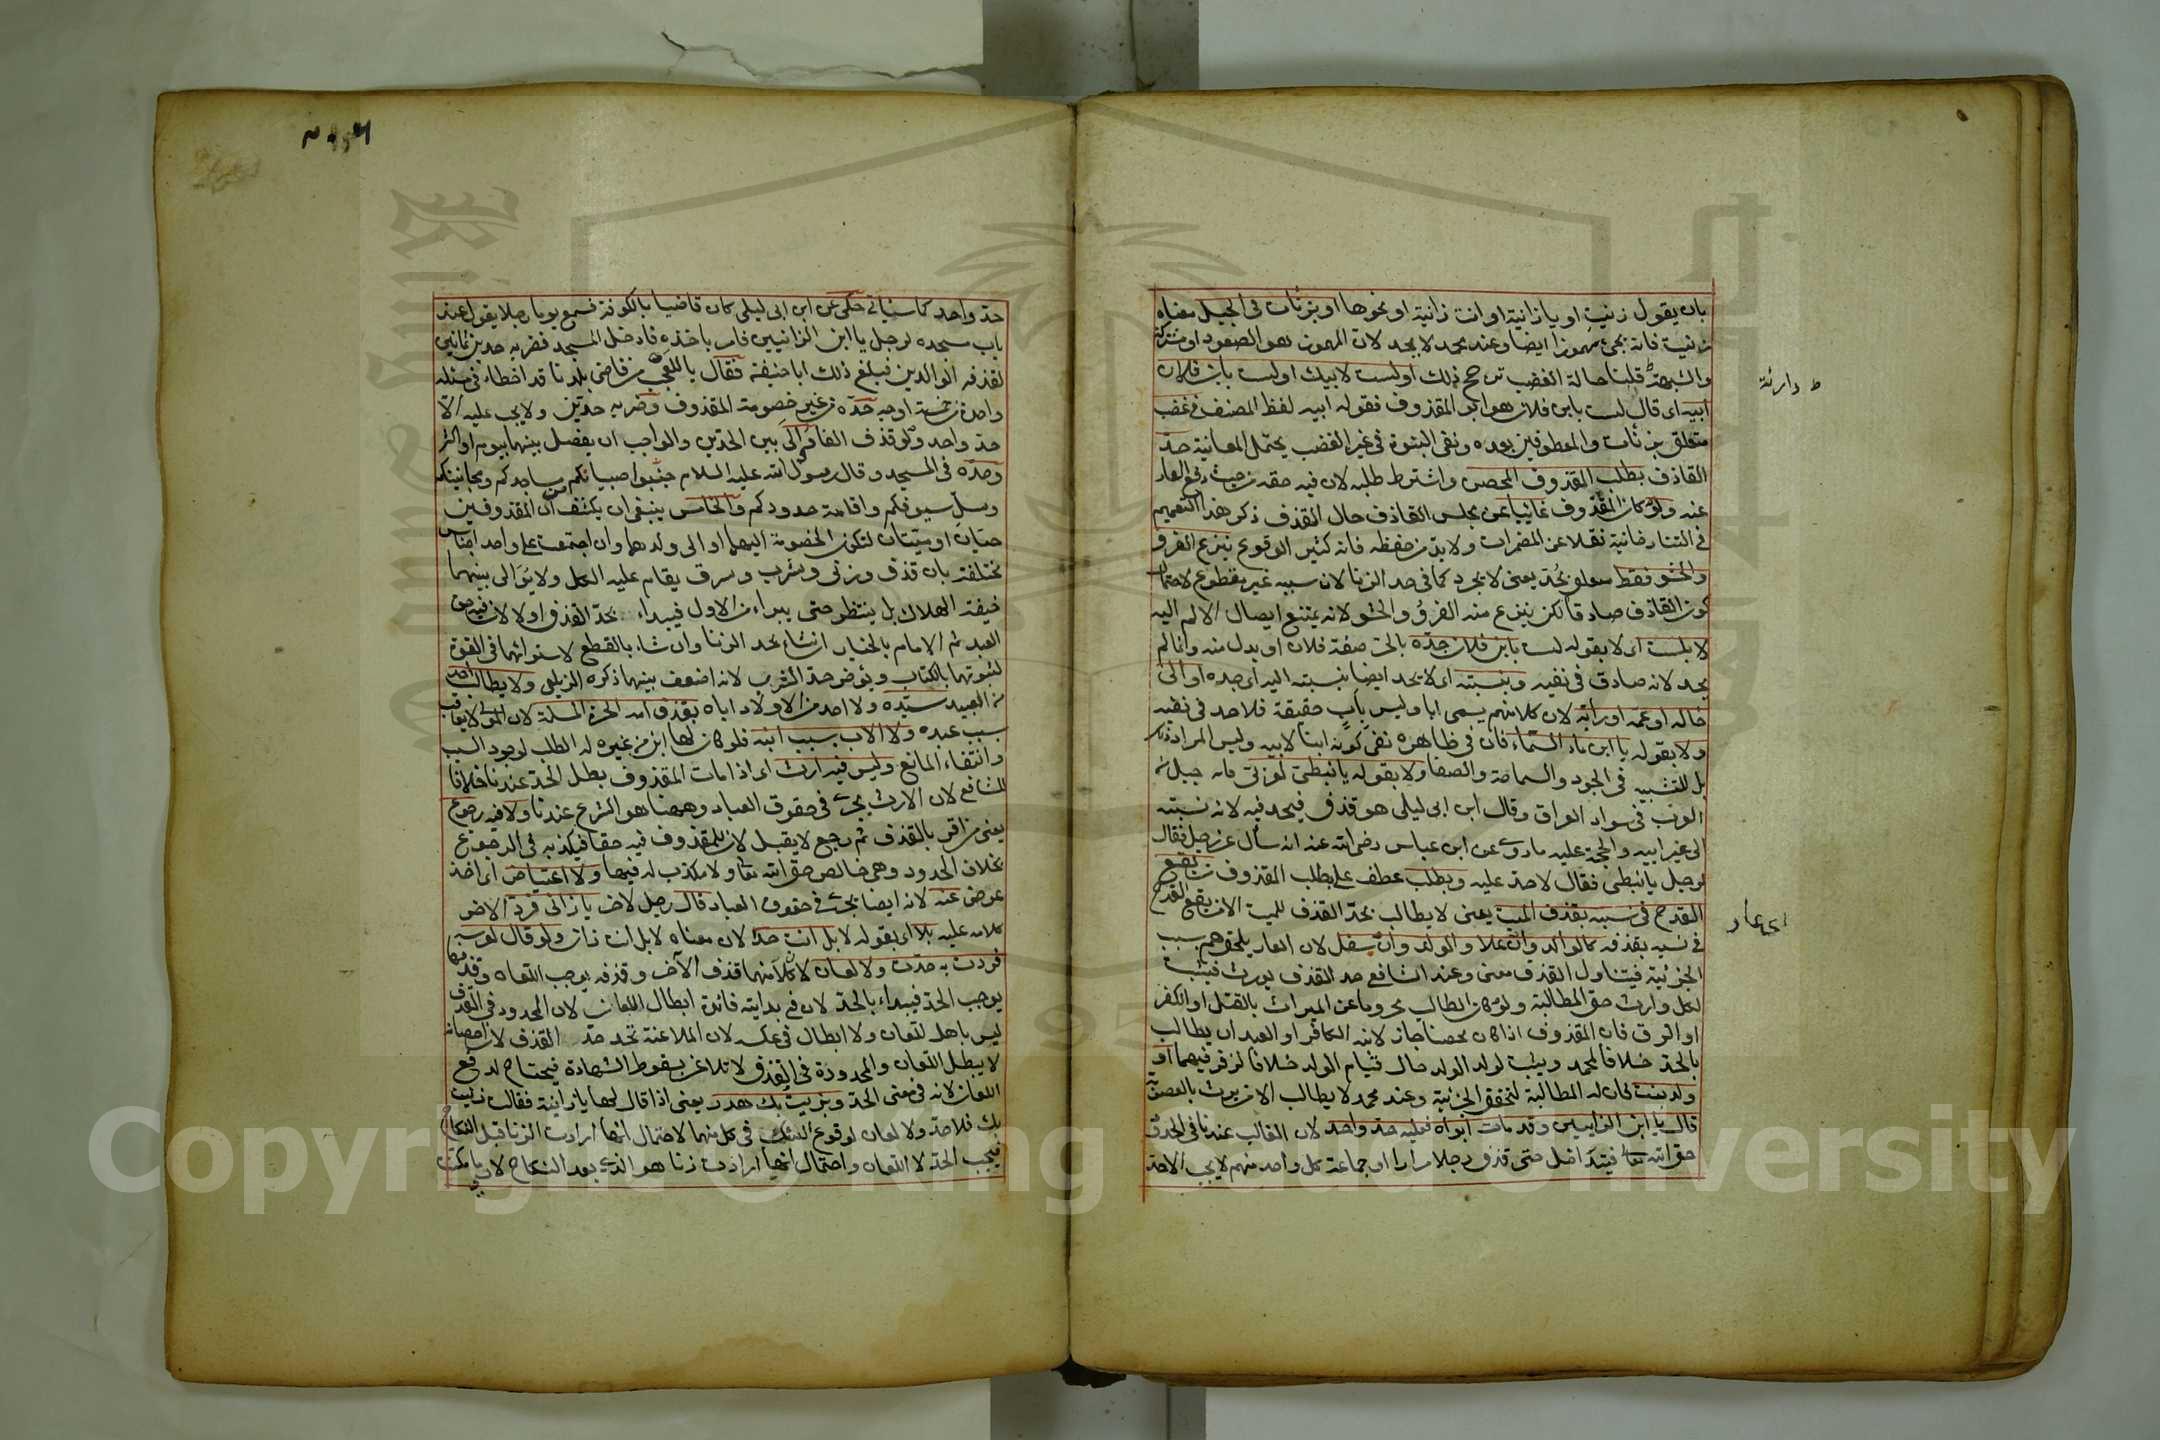 بان يقول زنيت او يا زانية او انت زانية او نحوها او بزنات في الجبل معناه
زنيت فانه يجئ مهموزا ايضا وعند محمد لا يحد لان المهموز هو الصعود او مشترك
والشبهة قلنا حالة الغضب ترجح ذلك او لست لابيك او لست بابن فلان
ابيه اى قال لست بابن فلان هو ابو المقذوف فقوله ابيه لفظ المصنف في غضب
متعلق بزنأت والمعطوفين بعده ونفى البنوة في غير الغضب يحتمل المعاتبة حد
القاذف بطلب المقذوف المحصن واشترط طلبه لان فيه حقه من حيث دفع العار
عنه ولو كان المقذوف غائبا عن مجلس القاذف حال القذف ذكر هذا التعميم
في التتارخانية نقلا عن المضمرات ولا بد من حفظه فانه كثير الوقوع بنزع الفرو
والحشو فقط متعلق بحد يعنى لا يجرد كما في حد الزنا لان سببه غير مقطوع لاحتمال
كون القاذف صادقا لكن ينزع منه الفرو والحشو لانه يمنع ايصال الالم اليه
لا بلست اى لا بقوله لست بابن فلان جده بالجر صفة فلان او بدل منه وانما لم
يحد لانه صادق في نفيه وبنسبته اى لا يحد ايضا بنسبته اليه اى جده او الى
خاله او عمه او رابه لان كلا منهم يسمى ابا وليس باب حقيقة فلا حد في نفيه
ولا بقوله يا ابن ماء السماء فان في ظاهره نفى كونه ابنا لابيه وليس المراد ذلك
بل للتشبيه في الجود والسماحة والصفا ولا بقوله يا نبطى لعربي فانه جيل من
العرب في سواد العراق وقال ابن ابى ليلى هو قذف فيحد فيه لانه نسبته
الى غير ابيه والحجة عليه ما روى عن ابن عباس رضى الله عنه انه سأل عن رجل فقال
لرجل يا نبطى فقال لا حد عليه وبطلب عطف على بطلب المقذوف من يقع
القدح في نسبه بقذف الميت يعنى لا يطالب بحد القذف للميت الا من يقع القدح
في نسبه بقذفه كالوالد وان علا والولد وان سفل لان العار يلحقهم بسبب
الجزئية فيتناول القذف معنى وعند الشافعى حد القذف يورث فيثبت
لكل وارث حق المطالبة ولو كان الطالب محروما عن الميراث بالقتل او الكفر
او الرق فان المقذوف اذا كان محصنا جاز لابنه الكافر او العبد ان يطالب
بالحد خلافا لمحمد ويثبت لولد الولد حال قيام الولد خلافا لزفر فيهما او
ولد بنت كان له المطالبة لتحقق الجزئية وعند محمد لا يطالب الا من يرث بالعصوبة
قال يا ابن الزانيين وقد مات ابواه فعليه حد واحد لان الغالب عندنا في الحد
حق الله تعالى فيتداخل حتى قذف رجلا مرارا او جماعة كل واحد منهم لا يجب الا حد
ط دارئة
اى عار
حد واحد كما سيأتى حكى عن ابن ابى ليلى كان قاضيا بالكوفة فسمع يوما رجلا يقول عند
باب مسجده لرجل يا ابن الزانيين فامر باخذه فادخل المسجد فضربه حدين ثمانين
لقذفه الوالدين فبلغ ذلك ابا حنيفة فقال يا للعجب من قاضى بلدنا قد اخطاء في مسئلة
واحدة من خمسة اوجه حده من غير خصومة المقذوف وضربه حدين ولا يجب عليه الا
حد واحد ولو قذف الفا ووالى بين الحدين والواجب ان يفصل بينهما بيوم او اكثر
وحده في المسجد وقال رسول الله عليه السلام جنبوا صبيانكم مساجدكم ومجانينكم
وسل سيوفكم واقامة حدودكم والخامس ينبغى ان يكشف ان المقذوفين
حيان او ميتان لتكون الخصومة اليهما او الى ولدهما وان اجتمعت على واحد اجناس
مختلفة بان قذف وزنى وشرب وسرق يقام عليه الكل ولا يوالى بينهما
خيفة الهلاك بل ينتظر حتى يبراء من الاول فيبداء بحد القذف اولا لان فيه حق
العبد ثم الامام بالخيار ان شاء بحد الزنا وان شاء بالقطع لاستوائهما في القوة
لثبوتهما بالكتاب ويؤخر حد الشرب لانه اضعف بينهما ذكره الزيلعى ولا يطالب احد
من العبيد سيده ولا احد من الاولاد اباه بقذف امه الحرة المسلمة لان المولى لا يعاقب
بسبب عبده ولا الاب بسبب ابنه فلو كان لها ابن من غيره له الطلب لوجود السبب
وانتفاء المانع وليس فيه ارث اى اذا مات المقذوف بطل الحد عندنا خلافا
للشافعى لان الارث يجرى في حقوق العباد وههنا هو الشرع عندنا ولا فيه رجوع
يعنى من اقر بالقذف ثم رجع لا يقبل لان للمقذوف فيه حقا فيكذبه في الرجوع
بخلاف الحدود وهى خالص حق الله تعالى ولا مكذب له فيها ولا اعتياض اى اخذ
عوض عنه لانه ايضا يجرى في حقوق العباد قال رجل لاخر يا زانى فرد الاخر
كلامه عليه بلا اى بقوله لا بل انت حدا لان معناه لا بل انت زان ولو قال لعرسه
فردت به حدت ولا لعان لان كلا منهما قذف الآخر وقذفه يوجب اللعان وقذفها
يوجب الحد فيبداء بالحد لان في بدايته فائدة ابطال اللعان لان المحدود في القذف
ليس باهل للعان ولا ابطال في عكسه لان الملاعنة تحد حد القذف لان احصانها
لا يبطل اللعان والمحدودة في القذف لا تلاعن بسقوط الشهادة فيحتاج لدفع
اللعان لانه في معنى الحد وبزنيت بك هدر يعنى اذا قال لها يا زانية فقالت زنيت
بك فلا حد ولا لعان لوقوع الشك في كل منهما لاحتمال انها ارادت الزنا قبل النكاح
فيجب الحد لا اللعان واحتمال انها ارادت زنا هو الذى بعد النكاح لانى ما مكنت
Copyright © King Saud University